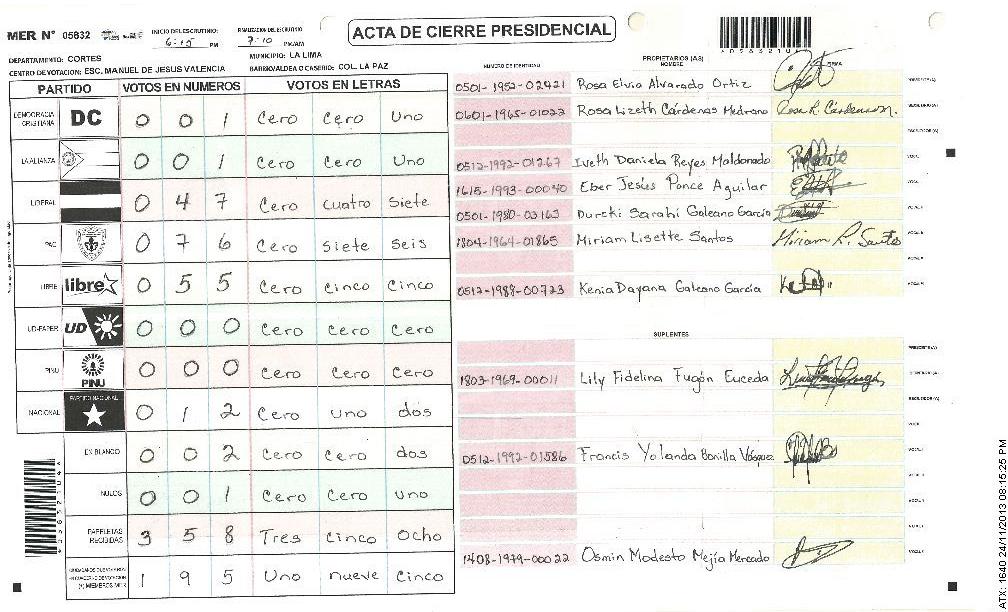 MER Nº 05832
INICIO DEL ESCRUTINIO:
6:15 PM
FINALIZACION DEL ESCRUTINIO:
7:10 PM/AM
ACTA DE CIERRE PRESIDENCIAL
DEPARTAMENTO: CORTES
MUNICIPIO: LA LIMA
CENTRO DE VOTACION: ESC. MANUEL DE JESUS VALENCIA
BARRIO/ALDEA O CASERIO: COL. LA PAZ
PARTIDO VOTOS EN NUMEROS VOTOS EN LETRAS
DEMOCRACIA CRISTIANA DC 0 0 1 Cero Cero Uno
LA ALIANZA 0 0 1 Cero Cero Uno
LIBERAL 0 4 7 Cero Cuatro Siete
PAC 0 7 6 Cero Siete Seis
LIBRE libre 0 5 5 Cero Cinco Cinco
UD-FAPER UD 0 0 0 Cero Cero Cero
PINU PINU 0 0 0 Cero Cero Cero
NACIONAL PARTIDO NACIONAL 0 1 2 Cero Uno dos
EN BLANCO 0 0 2 Cero Cero dos
NULOS 0 0 1 Cero Cero Uno
PAPELETAS RECIBIDAS 3 5 8 Tres Cinco Ocho
1 9 5 Uno nueve Cinco
NUMERO DE IDENTIDAD
PROPIETARIOS (AS)
NOMBRE
FIRMA
0501-1952-02421 Rosa Elvia Alvarado Ortiz
0601-1965-01022 Rosa Lizeth Cárdenas Medrano
0512-1992-01267 Iveth Daniela Reyes Maldonado
1615-1993-00040 Eber Jesús Ponce Aguilar
0501-1980-03163 Sarahi Galeano García
1804-1964-01865 Miriam Lisette Santos Miriam R. Santos
0512-1988-00723 Kenia Dayana Galeano García
SUPLENTES
1803-1969-00011 Lily Fidelina Fugón Euceda
0512-1992-01586 Francis Yolanda Bonilla Vásquez
1408-1979-00022 Osmin Modesto Mejía Mercado
ATX: 1640 24/11/2013 08:15:25 PM